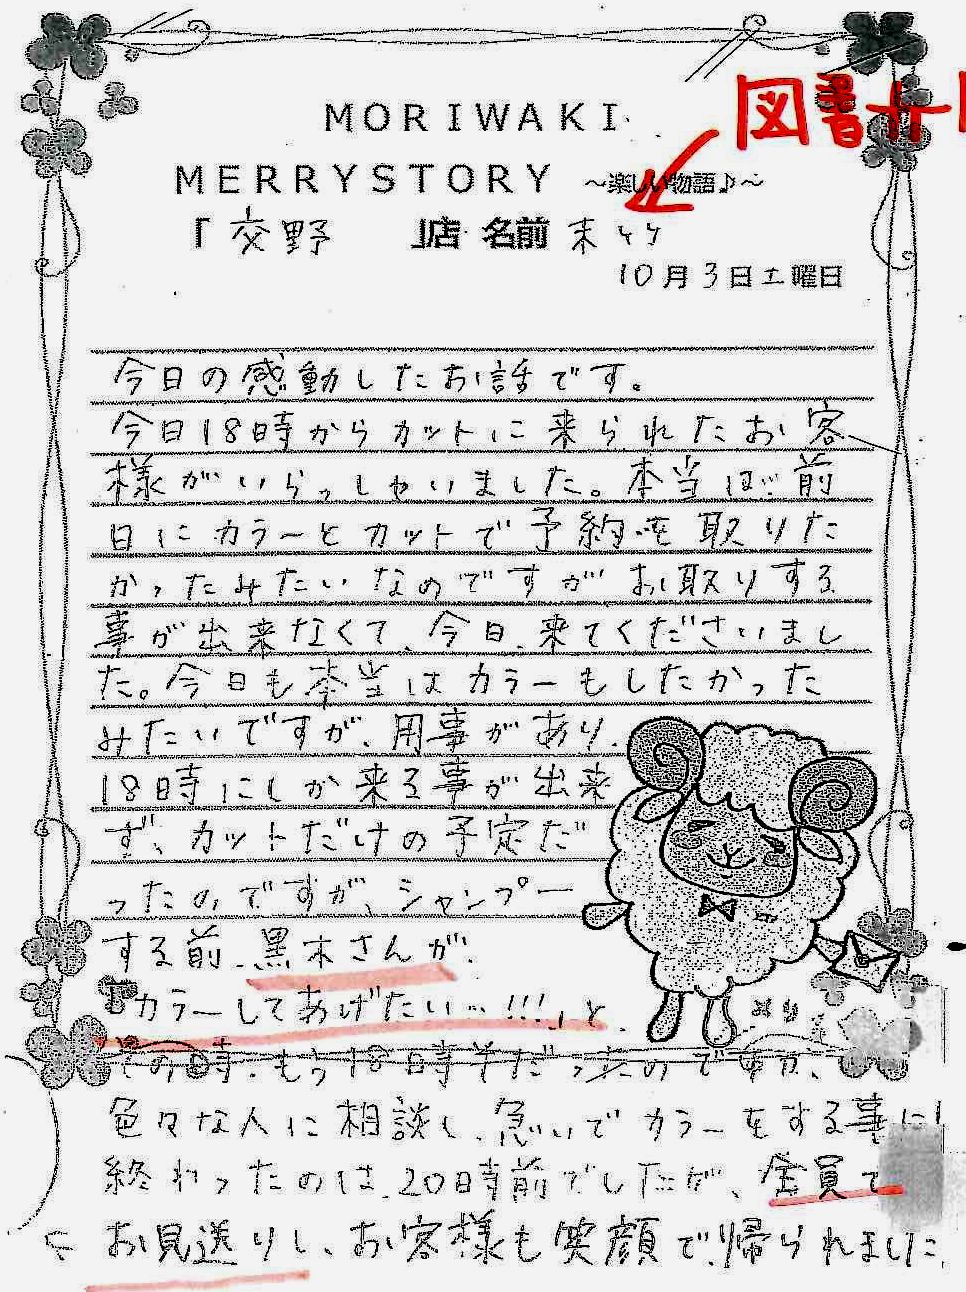 図書カード
MORIWAKI
MERRYSTORY ～楽しい物語♪～
「交野 」店 名前 末
10月3日土曜日
今日の感動したお話です。
今日18時からカットに来られたお客
様がいらっしゃいました。本当は前
日にカラーとカットで予約を取りた
かったみたいなのですがお取りする
事が出来なくて、今日、来てくださいまし
た。今日も本当はカラーもしたかった
みたいですが、用事があり、
18時にしか来る事が出来
ず、カットだけの予定だ
ったのですが、シャンプー
する前、黒木さんが、
「カラーしてあげたい…!!!」と、
その時、もう18時半だったのですが、
色々な人に相談し、急いでカラーをする事に!
終わったのは、20時前でしたが、全員で
お見送りし、お客様も笑顔で帰られました